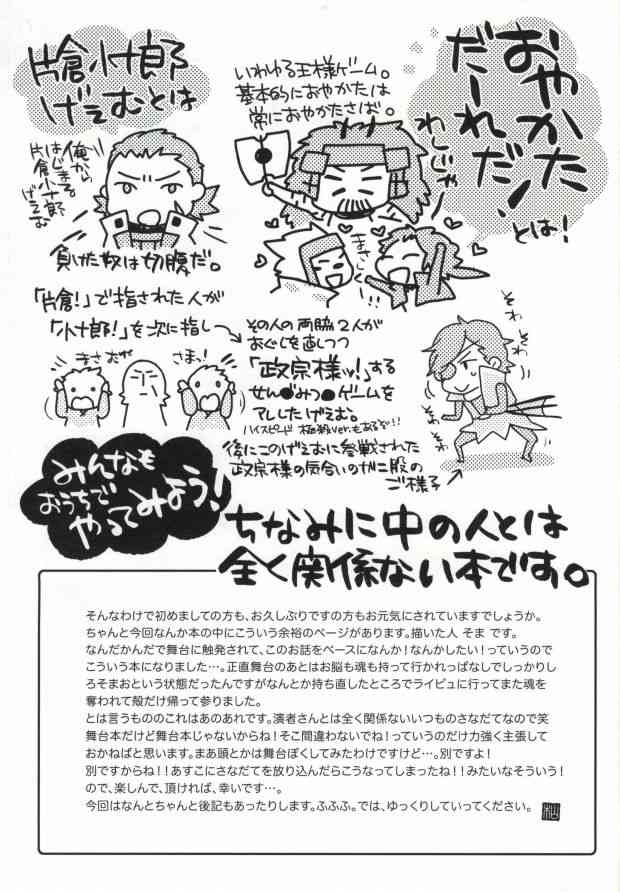 おやかた
だーれだ!
とは!
わしじゃー
いわゆる王様ゲーム。
基本的におやかたは
常におやかたさば。
まさむ
片倉小十郎
げえむとは
俺から
はじまる
片倉小十郎
げえむ
負けた奴は切腹だ。
「片倉!」で指された人が
「小十郎!」を次に指し
その人の両脇2人が
おぐしを直しつつ
「政宗様ッ!」する
せん●みつ●ゲームを
アレしたげえむ。
ハイスピード 極殺ver.もあるぞ!!
まさむね
さまっ!
そわ
そわ
そわ
そわ
後にこのげえむに参戦された
政宗様の気合いのガニ股の
ご様子
みんなも
おうちで
やってみよう!
ちなみに中の人とは
全く関係ない本です。
そんなわけで初めましての方も、お久しぶりですの方もお元気にされていますでしょうか。
ちゃんと今回なんか本の中にこういう余裕のページがあります。描いた人 そま です。
なんだかんだで舞台に触発されて、このお話をベースになんか!なんかしたい!っていうので
こういう本になりました…。正直舞台のあとはお脳も魂も持って行かれっぱなしでしっかりし
ろそまおという状態だったんですがなんとか持ち直したところでライビュに行ってまた魂を
奪われて殻だけ帰って参りました。
とは言うもののこれはあのあれです。演者さんとは全く関係ないいつものさなだてなので笑
舞台本だけど舞台本じゃないからね!そこ間違わないでね!っていうのだけ力強く主張して
おかねばと思います。まあ頭とかは舞台ぽくしてみたわけですけど…。別ですよ!
別ですからね!!あすこにさなだてを放り込んだらこうなってしまったね!!みたいなそういう!
ので、楽しんで、頂ければ、幸いです…。
今回はなんとちゃんと後記もあったりします。ふふふ。では、ゆっくりしていってください。